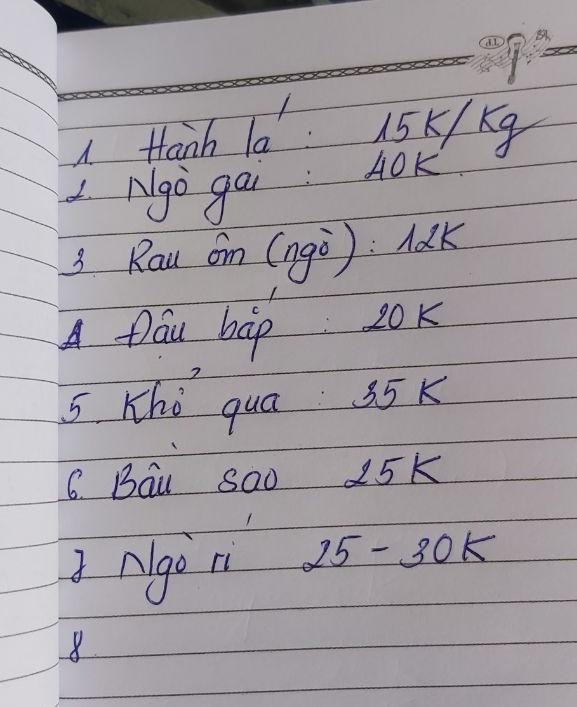 1 Hành lá : 15K/Kg
2. Ngò gai : 40K
3 Rau ôm (ngò) : 12K
4 Đâu bắp : 20K
5. Khổ qua : 35K
6. Bầu sao 25K
7 Ngò rí 25 - 30K
8